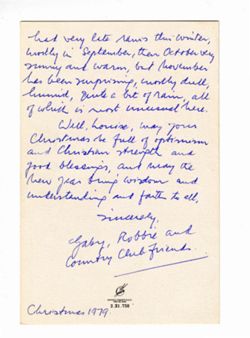 had very late rains this winter,
mostly in September, then October very
sunny and warm, but November
has been surprising, mostly dull,
humid, quite a bit of rain, all
of which is most unusual here.
Well, Louise, may your
Christmas be full of optimism
and Christian strength and
good blessings, and may the
New Year bring wisdom and
understanding and faith to all,
Sincerely,
Gaby, Robbie and
Country Club friends.
Christmas 1979